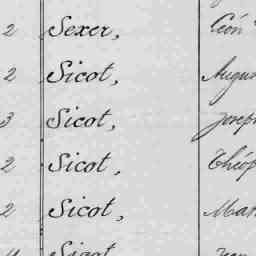 2 Sexer, Léon
2 Sicot, Augus
3 Sicot, Joseph
2 Sicot, Théop
2 Sicot, Mat
Sicot,